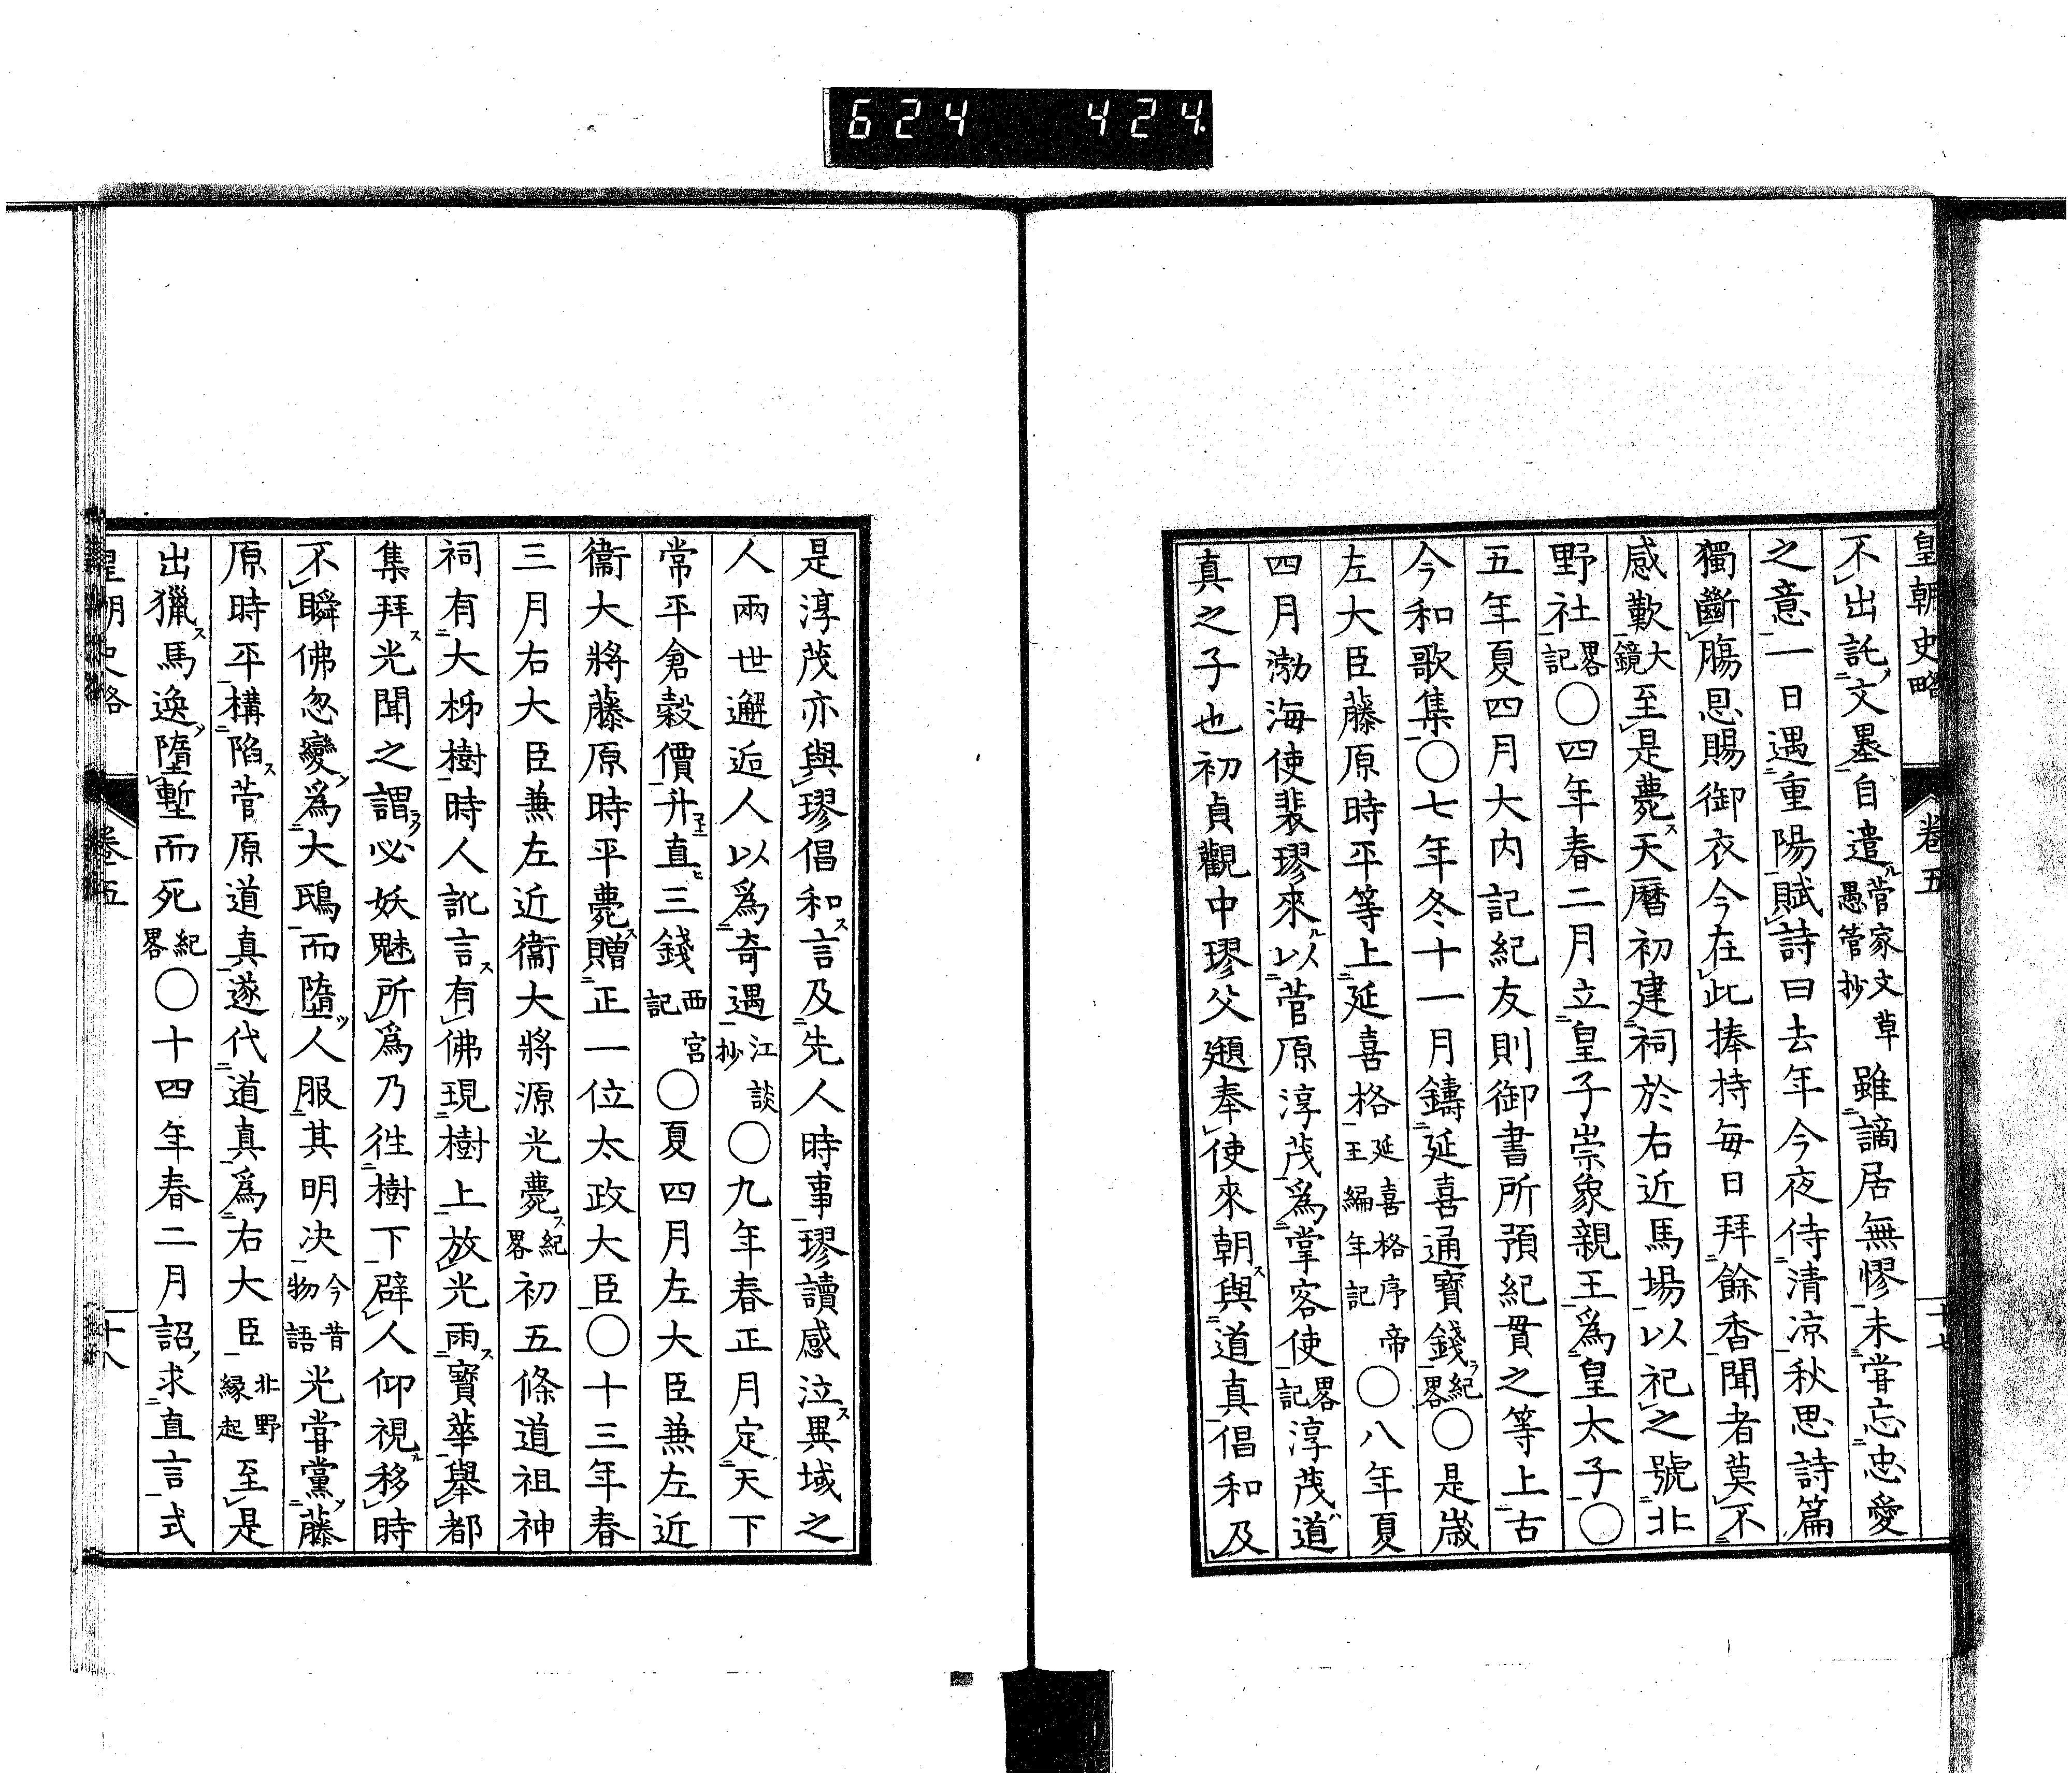 624 424
皇朝史略 卷五 十七
不出託文墨自遣菅家文草愚管抄雖謫居無憀未嘗忘忠愛
之意一日遇重陽賦詩曰去年今夜侍清凉秋思詩篇
獨斷膓恩賜御衣今在此捧持每日拜餘香聞者莫不
感歎大鏡至是薨天曆初建祠於右近馬場以祀之號北
野社畧記〇四年春二月立皇子崇象親王為皇太子〇
五年夏四月大內記紀友則御書所預紀貫之等上古
今和歌集〇七年冬十一月鑄延喜通寶錢紀畧〇是歲
左大臣藤原時平等上延喜格延喜格序帝王編年記〇八年夏
四月渤海使裴璆來以菅原淳茂為掌客使畧記淳茂道
真之子也初貞觀中璆父頲奉使來朝與道真倡和及
是淳茂亦與璆倡和言及先人時事璆讀感泣異域之
人兩世邂逅人以為奇遇江談抄〇九年春正月定天下
常平倉穀價升直三錢西宮記〇夏四月左大臣兼左近
衞大將藤原時平薨贈正一位太政大臣〇十三年春
三月右大臣兼左近衞大將源光薨紀畧初五條道祖神
祠有大柹樹時人訛言有佛現樹上放光雨寶華舉都
集拜光聞之謂必妖魅所為乃徃樹下辟人仰視移時
不瞬佛忽變為大鵄而墮人服其明决今昔物語光嘗黨藤
原時平構陷菅原道真遂代道真為右大臣北野縁起至是
出獵馬逸墮塹而死紀畧〇十四年春二月詔求直言式
皇朝史略 卷五 十八